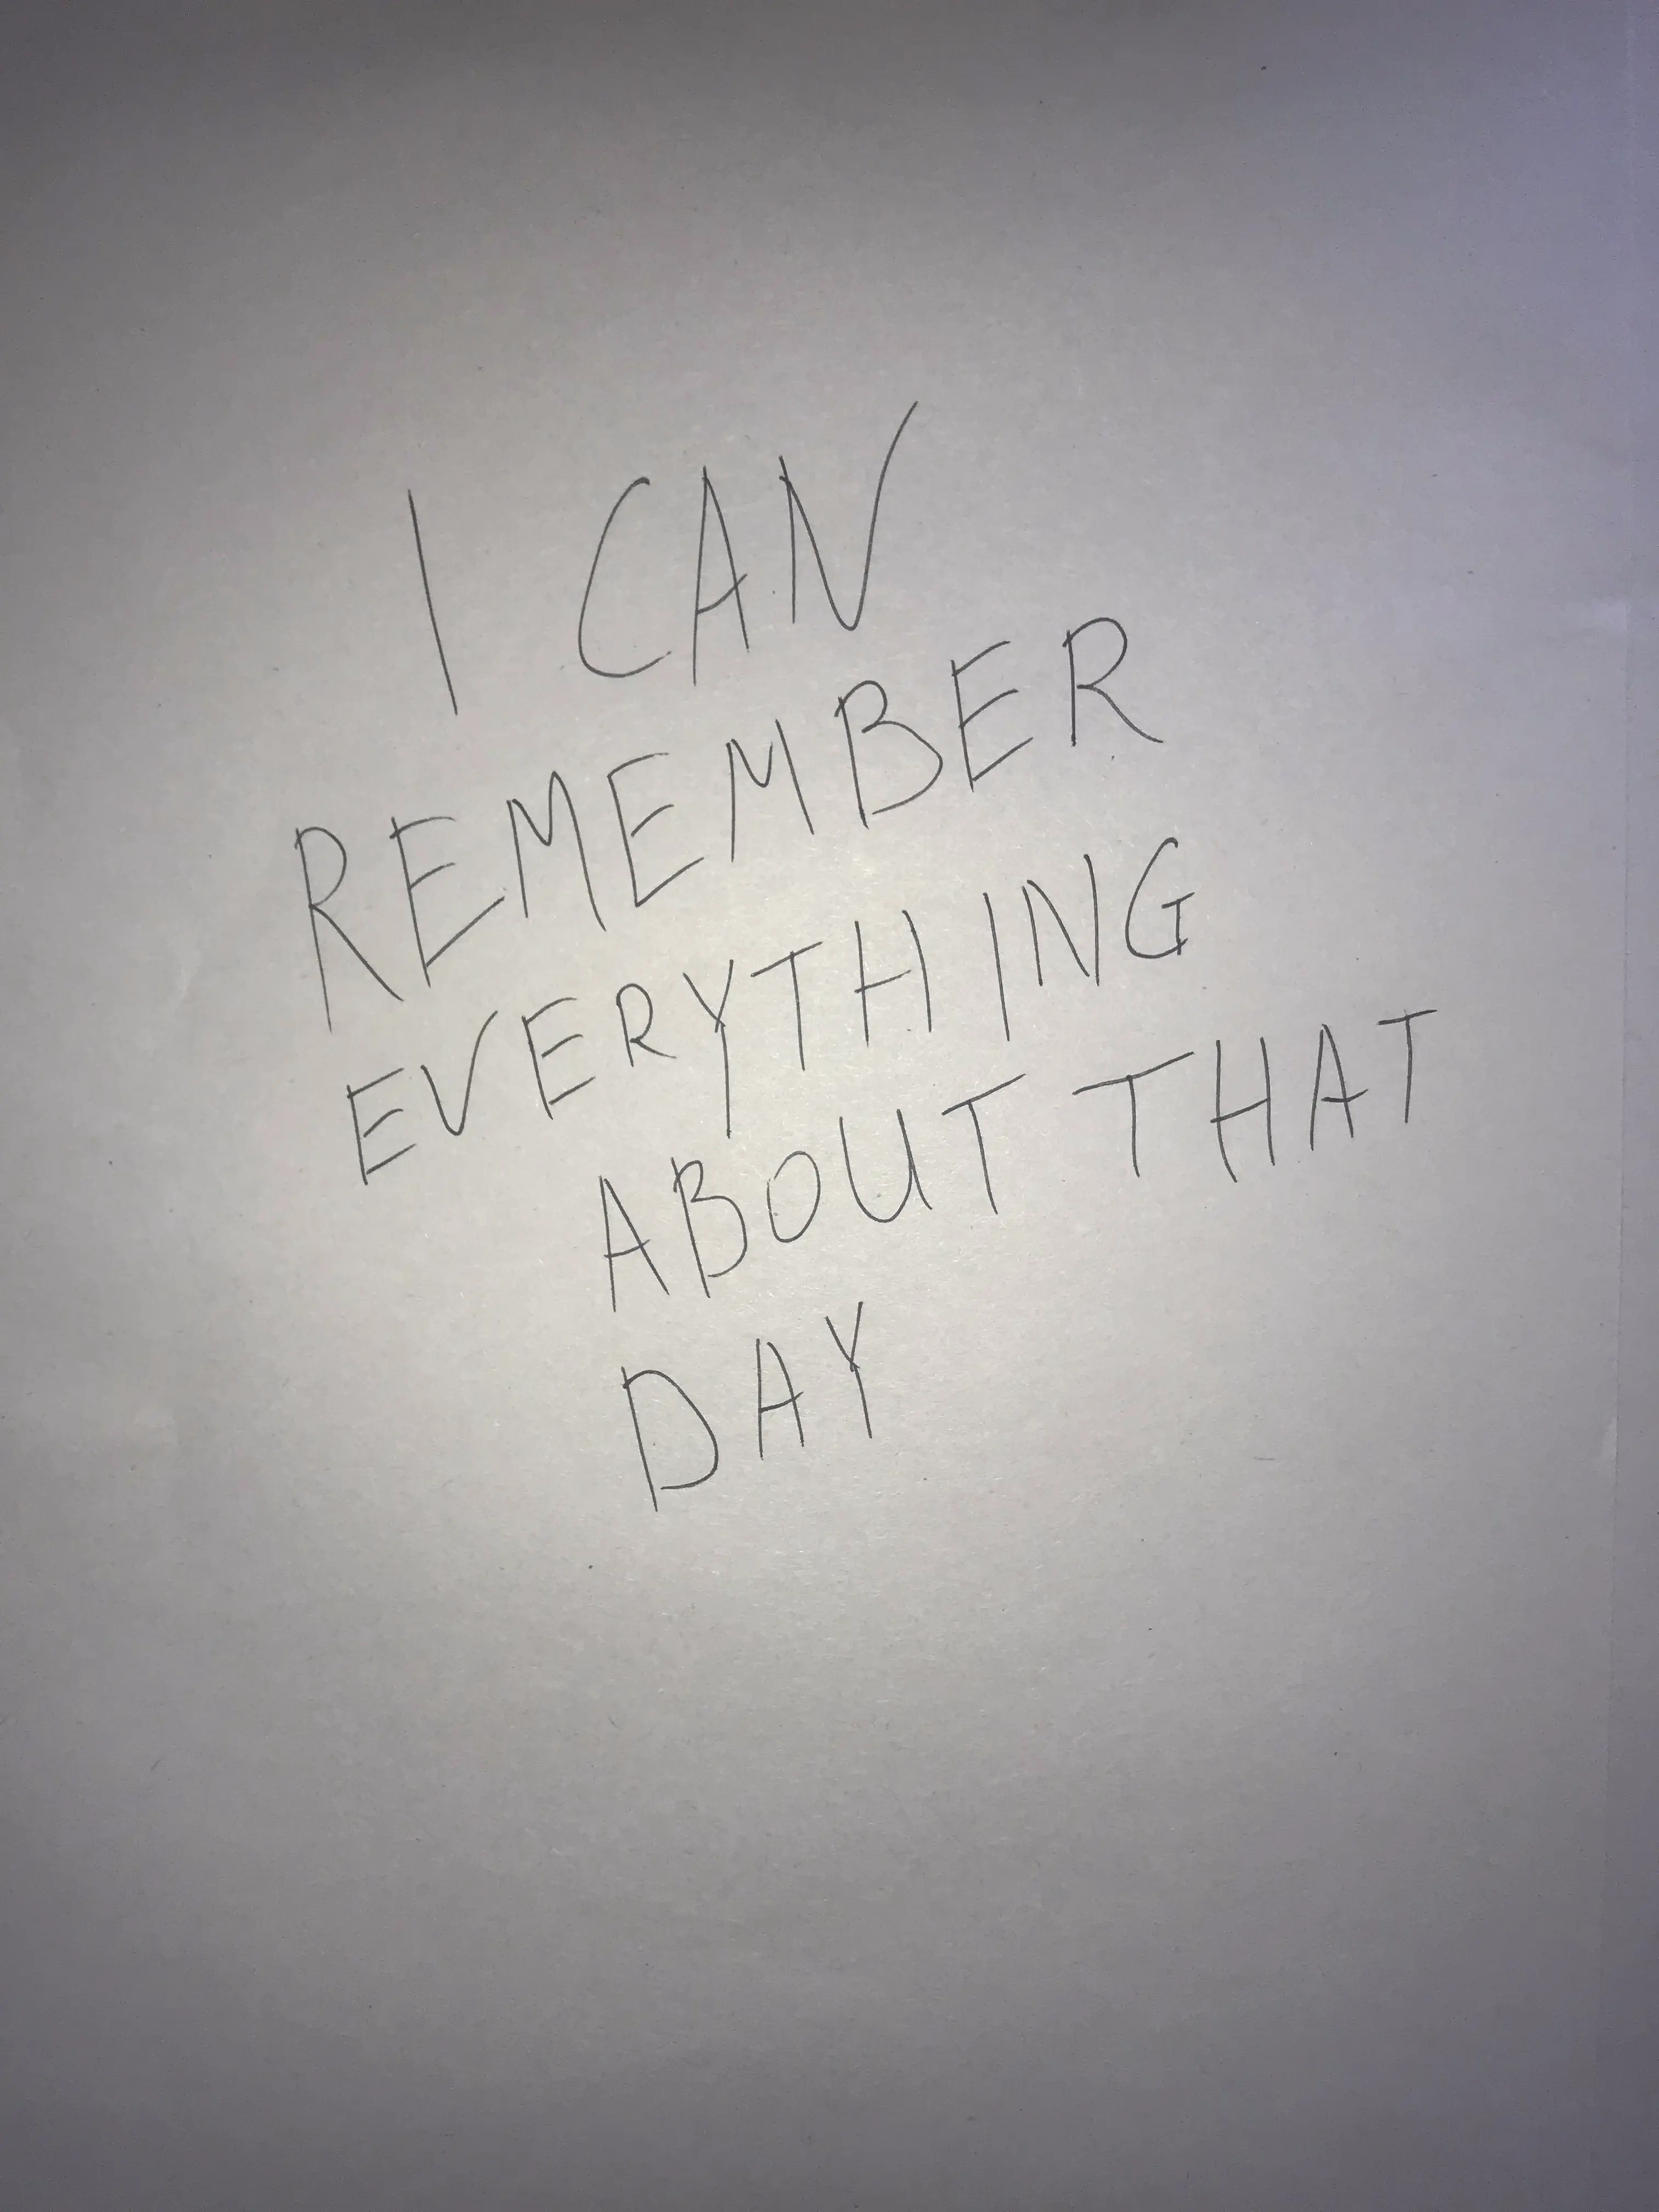 I CAN
REMEMBER
EVERYTHING
ABOUT THAT
DAY